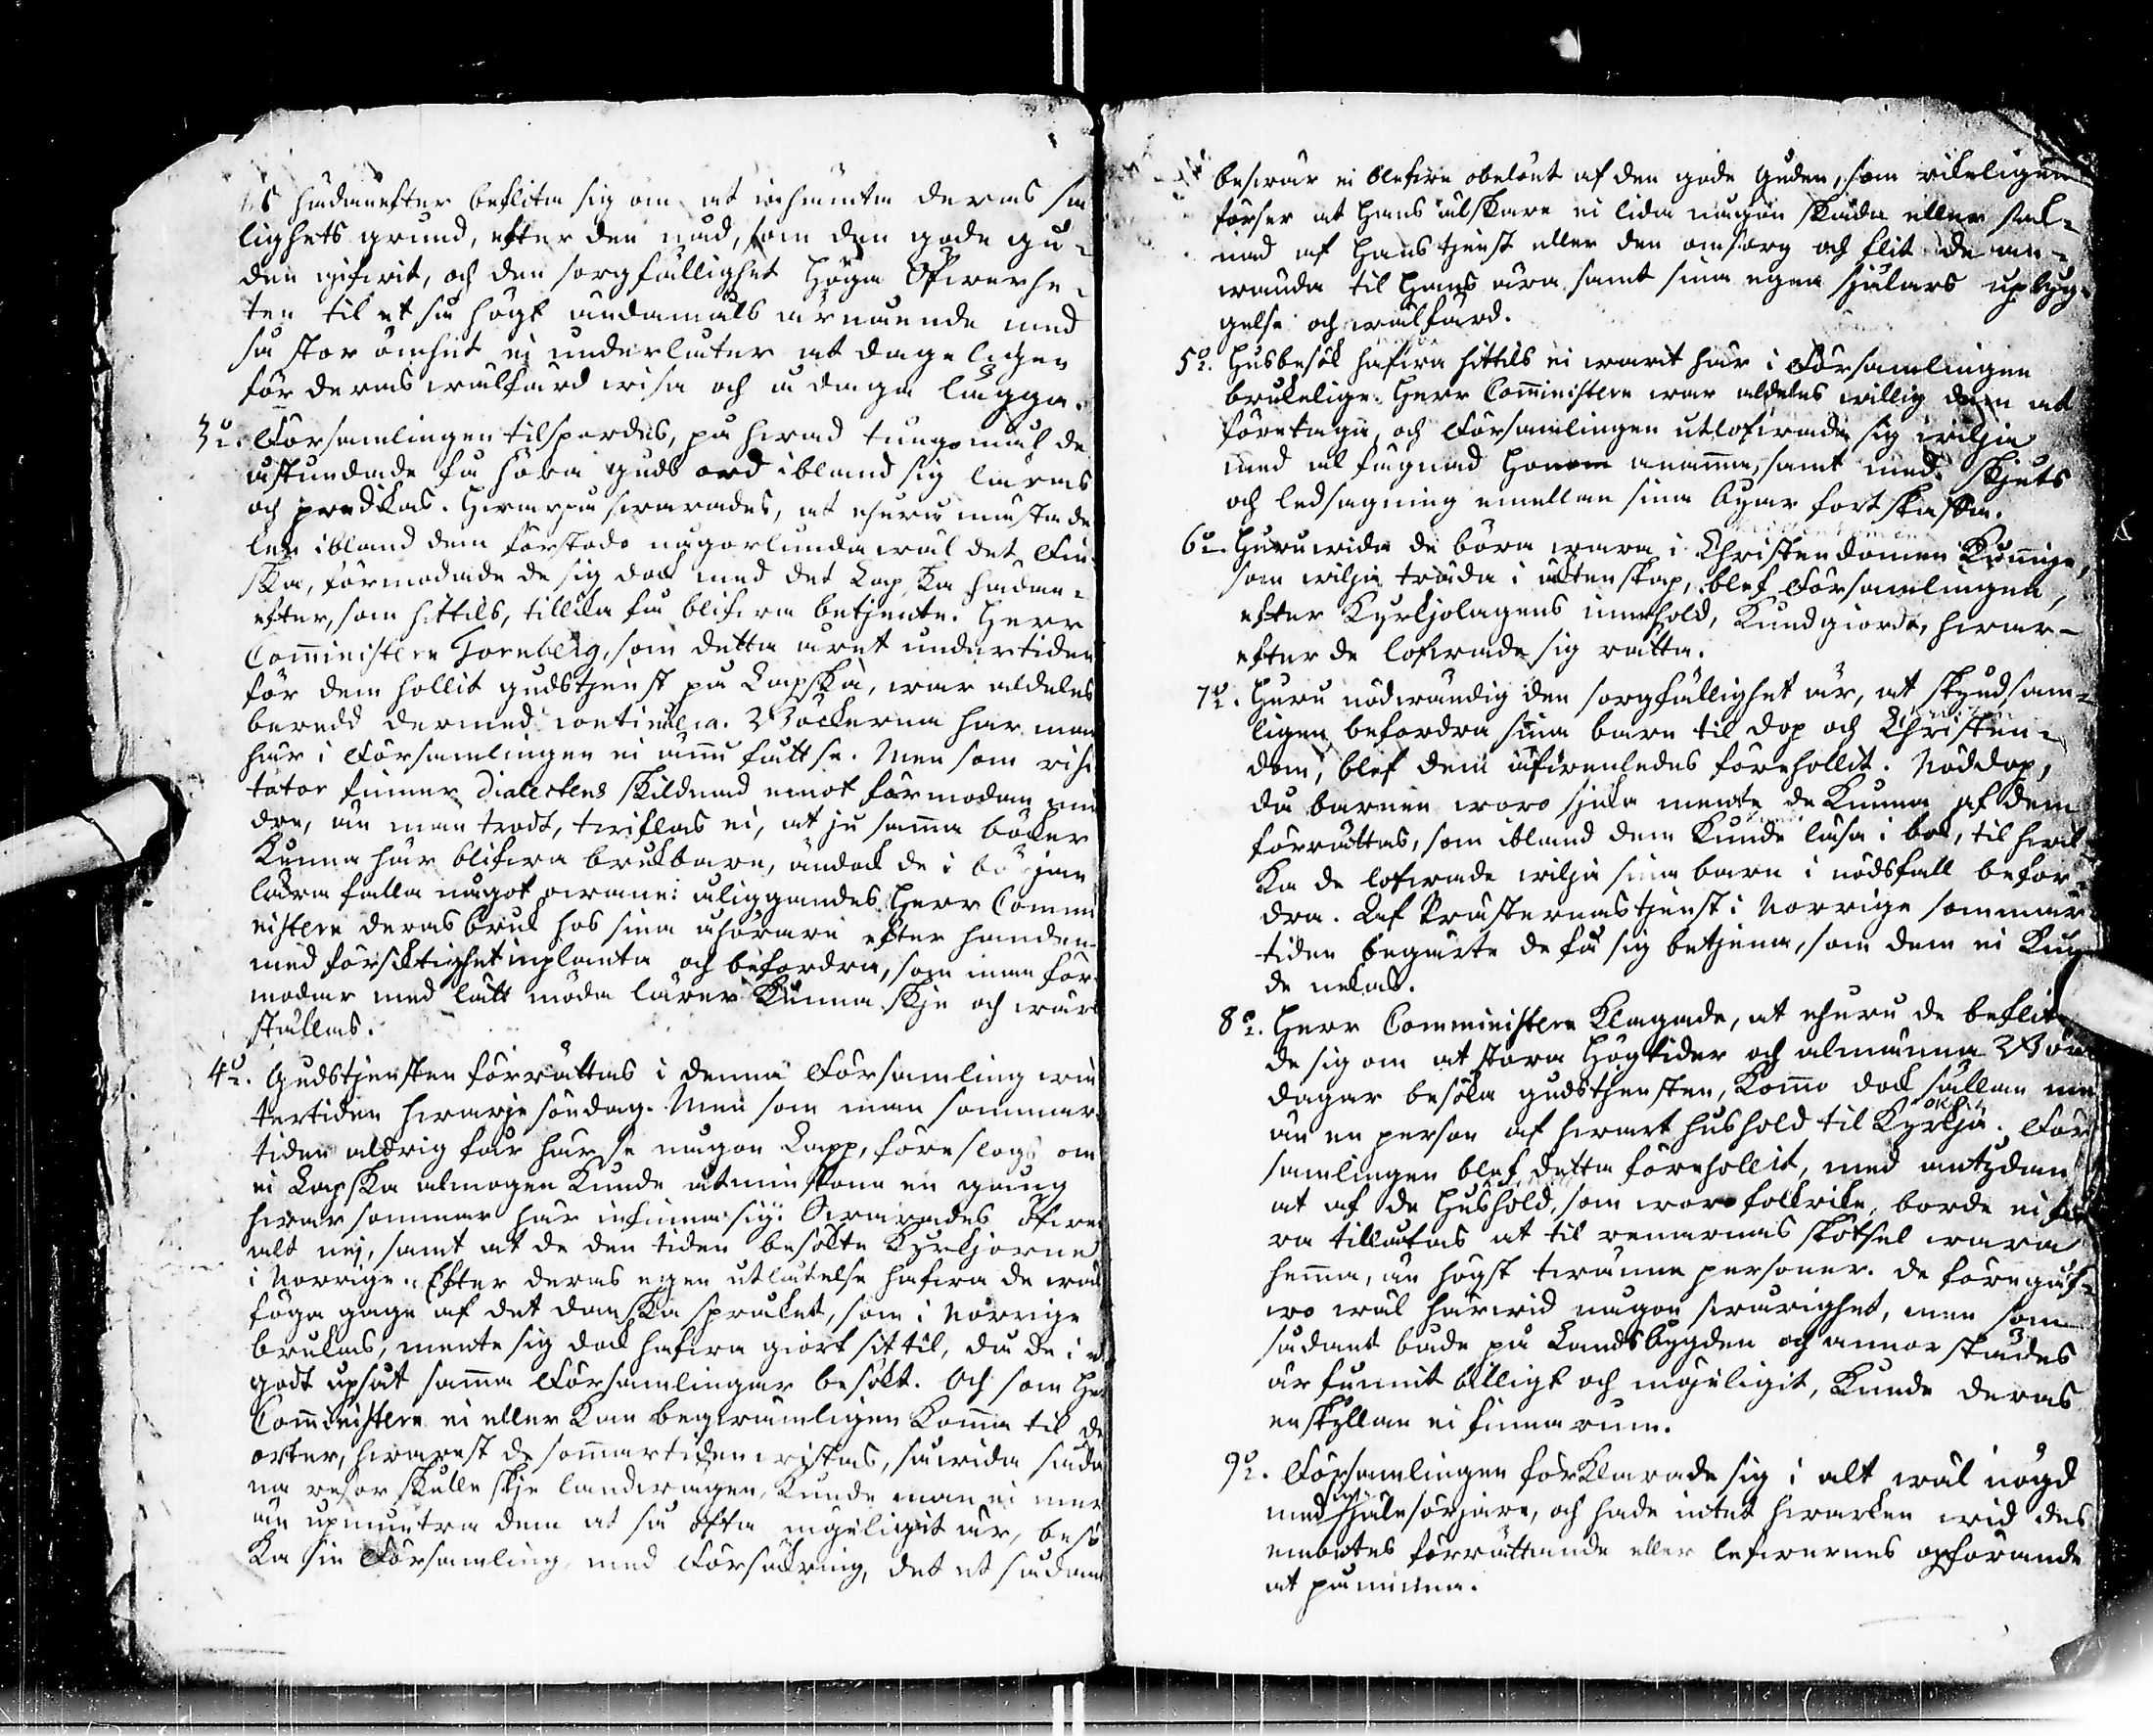 hädanefter beflita sig om at inhämta deras sa
lighets grund, efter den nåd, som den gode gu-
den gifwit, och den sorgfällighet Höga Öfwerhe-
ten til et så högt ändamåls ärnående med
så stor ömhet ej underlåter at dageligen
för deras wälfärd wisa och å daga lägga.
3:o. Församlingen tilspordes, på hwad tungomål de
åstundade få höra Guds ord ibland sig läras
och predikas. Hwarpå swarades, at ehuru mästa de
len ibland dem förstodo någorlunda wäl det Fin-
ska, förmodade de sig dock med det Lapska hädan-
efter, som hittils, tillika få blifwa betjente. Herr
Comministern Tornberg, som detta året undertiden
för dem hollit gudstjenst på Lapska, war aldeles
beredd dermed continuera. Böckerna har man
här i Församlingen ei ännu fått se. Men som visi
tator finner Dialectens skildnad emot förmodan min
dre, än man trodt, twiflas ei, at ju samma böcker
kunna här blifwa brukbara, ändock de i början
lära falla något owane: åliggandes Herr Commi
nistern deras bruk hos sina åhörare efter handen
med försiktighet inplanta och befordra, som man för-
modar med lätt möda lärer kunna skje och wärk
ställas.
4:o. Gudstjensten förrättas i denna Församling win
tertiden hwarje söndag. Men som man sommar
tiden aldrig får här se någon Lapp, föreslogs om
ei Lapska almogen kunde åtminstone en gång
hwar sommar här infinna sig. Swarades öfwer
alt nej, samt at de den tiden besökte Kyrkjorne
i Norrige. Efter deras egen utlåtelse hafwa de wäl
föga gagn af det danska språket, som i Norrige
brukas, mente sig dock hafwa giort sit til, då de i et
godt upsåt samma Församlingar besökt. Och som He
Comministern ei eller kan beqwämligen komma til de
orter, hwarest de sommartiden wistas, såwida såda
na resor skulle skje landwägen, kunde man ei mer
än upmuntra dem at så ofta möjeligit är, besö
ka sin Församling, med Försäkring, det et sådant
beswär ei blefwe obelönt af den gode Guden, som rikeligen
förser at Hans älskare ei lida någon skada eller sak-
nad af Hans tjenst eller den omsorg och flit de an-
wända til Hans ära samt sina egna själars upbyg-
gelse och wälfärd.
5:o. Husbesök hafwa hittils ei warit här i Församlingen
brukelige. Herr Comministern war aldeles willig dem at
företaga, och Församlingen utlofwade sig wilja
med al fägnad Honom anamma, samt med skjuts
och ledsagning emellan sina byar fortskaffa.
6:o. Huruwida de böra wara i Christendomen kunnige,
som wilja träda i äktenskap, blef Församlingen,
efter Kyrkjolagens innehold, kundgiordt, hwar-
efter de lofwade sig rätta.
7:o. Huru nödwändig den sorgfällighet är, at skyndsam-
ligen befordra sina barn til dop och Christen-
dom, blef dem äfwenledes förehollit. Nöddop,
då barnen woro sjuka mente de kunna af dem
förrättas, som ibland dem kunde läsa i bok, til hwil
ka de lofwade wilja sina barn i nödsfall befor-
dra. Af Prästernas tjenst i Norrige sommar
tiden begärte de få sig betjena, som dem ei kun
de nekas.
8:o. Herr Comministern klagade, at ehuru de beflita
de sig om at stora Högtider och almänna Böne
dagar besöka gudstjensten, kommo dock sällan mer
än en person af hwart hushold til Kyrkja. För
samlingen blef detta förehollit, med antydan
at af de Hushold, som woro folkrike, borde ei fle
ra tillåtas at til renarnas skötsel wara
hemma, än högst twänne personer. de föregåf-
wo wäl härwid någon swårighet, men som
sådant både på Landsbygden och annorstädes
är funnit billigt och möjeligit, kunde deras
enskyllan ei finna rum.
9:o. Församlingen förklarade sig i alt wäl nögd
med sin själesörjare, och hade intet hwarken wid des
embetes förrättande eller lefwernes opförande
at påminna.